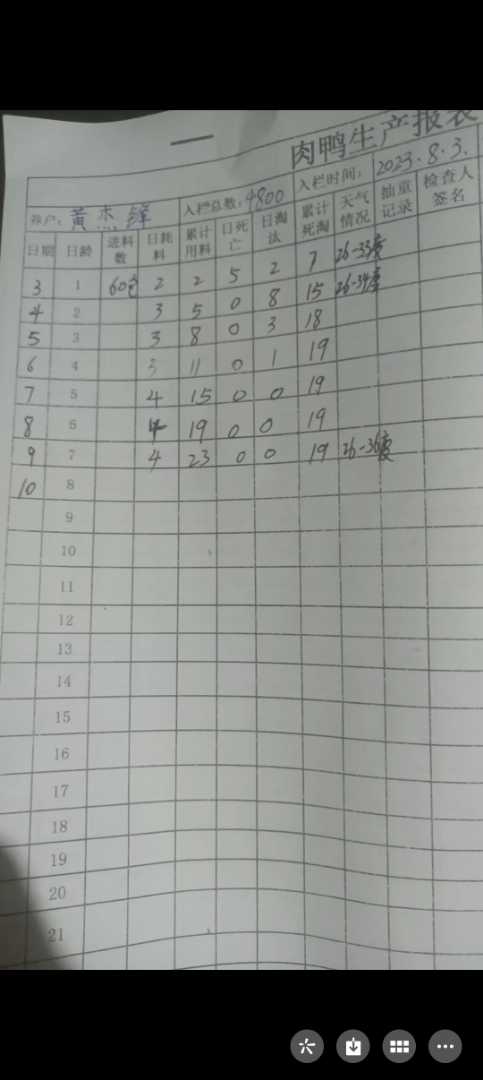 肉鸭生产报表
养户：黄杰锋 入栏总数：4800 入栏时间：2023.8.3.
日期 日龄 进料数 日耗料 累计用料 日死亡 日淘汰 累计死淘 天气情况 抽重记录 检查人签名
3 1 60包 2 2 5 2 7 26-33度
4 2 3 5 0 8 15 26-34度
5 3 3 8 0 3 18
6 4 3 11 0 1 19
7 5 4 15 0 0 19
8 6 4 19 0 0 19
9 7 4 23 0 0 19 26-36度
10 8
9
10
11
12
13
14
15
16
17
18
19
20
21